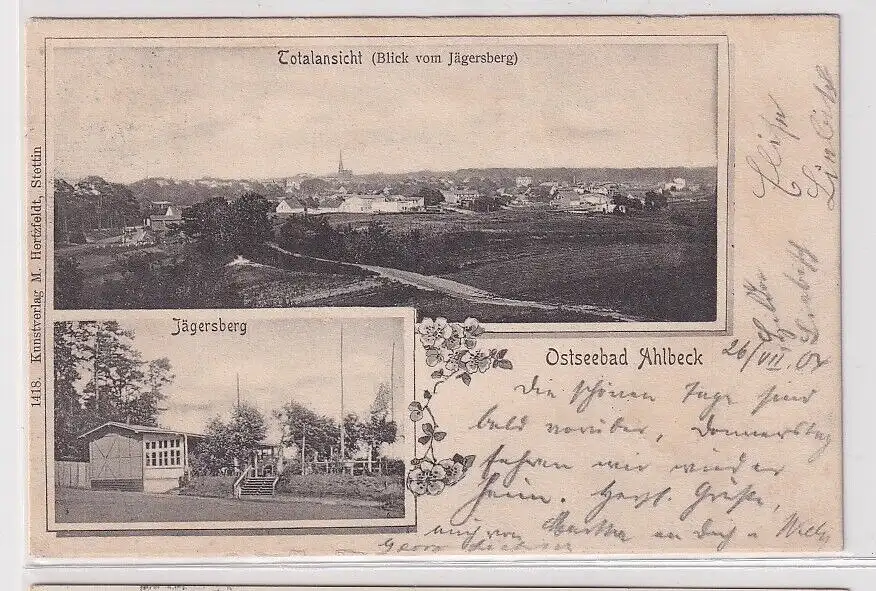 Totalansicht (Blick vom Jägersberg)
1418. Kunstverlag M. Hertzfeldt, Stettin
Jägersberg
Ostseebad Ahlbeck
26/VII. 04
Die schönen Tage sind
bald vorüber, Donnerstag
fahren wir wieder
heim. Herzl. Grüße,
auch von Martha an Dich u. Willy
Georg